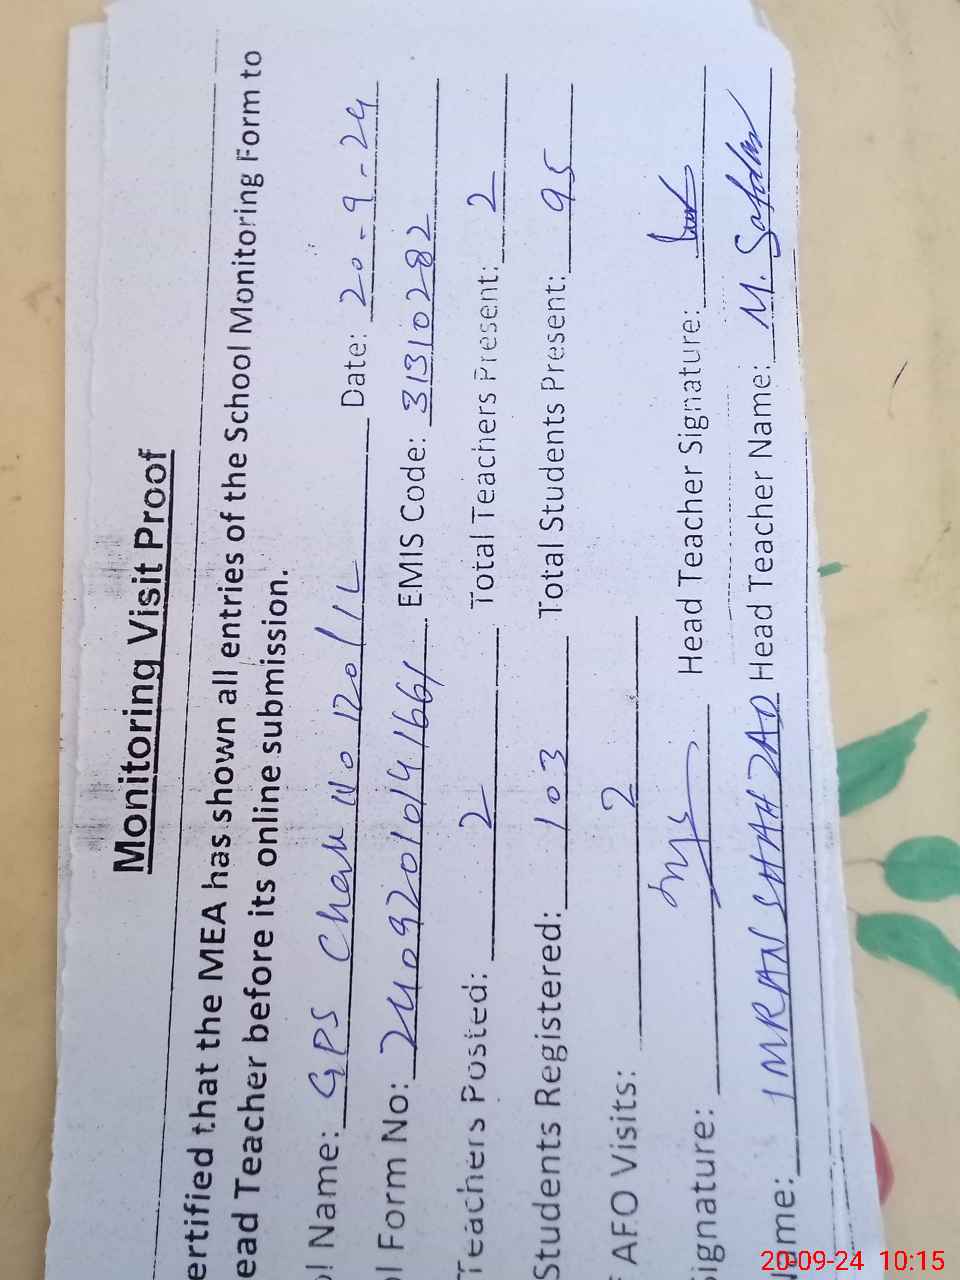 Monitoring Visit Proof
ertified that the MEA has shown all entries of the School Monitoring Form to
ead Teacher before its online submission.
ol Name: GPS Chak No 120/1L Date: 20-9-24
ol Form No: 24092010141661 EMIS Code: 31310282
Teachers Posted: 2 Total Teachers Present: 2
Students Registered: 103 Total Students Present: 95
f AFO Visits: 2
ignature: Head Teacher Signature:
ame: IMRAN SHAHZAD Head Teacher Name: M. Safdar
20-09-24 10:15